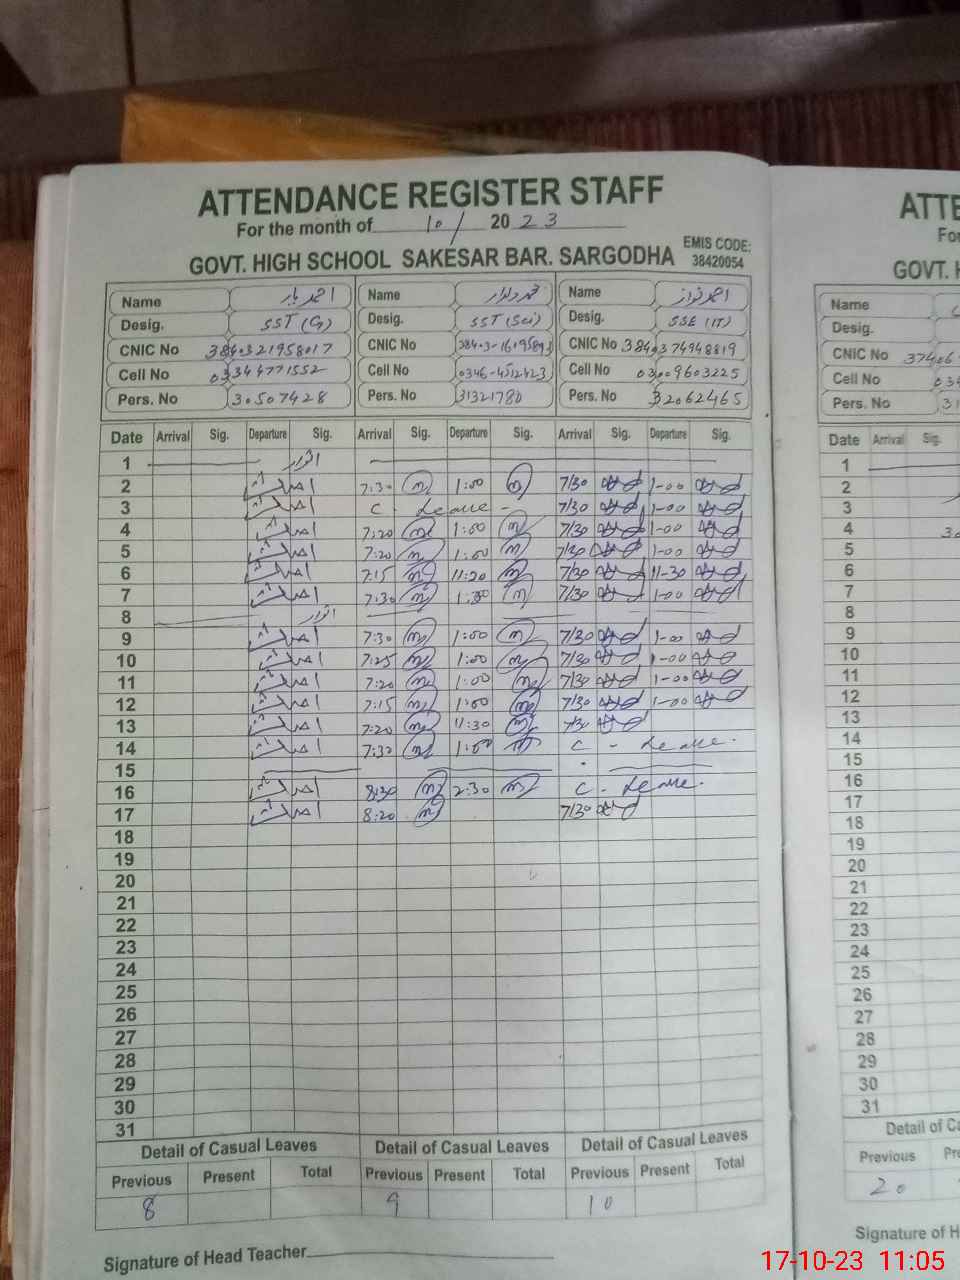 ATTENDANCE REGISTER STAFF
For the month of 10/ 2023
GOVT. HIGH SCHOOL SAKESAR BAR. SARGODHA EMIS CODE: 38420054
Name احمد یار Name محمد دلدار Name احمد نواز
Desig. SST (G) Desig. SST (Sci) Desig. SSE (IT)
CNIC No 3840321958017 CNIC No CNIC No 3840374948819
Cell No 03344771552 Cell No 0346-4512423 Cell No 03009603225
Pers. No 30507428 Pers. No 31321780 Pers. No 32062465
Date Arrival Sig. Departure Sig. Arrival Sig. Departure Sig. Arrival Sig. Departure Sig.
1 اتوار
2 7:30 1:00 7/30 1-00
3 C - Leave - 7/30 1-00
4 7:20 1:00 7/30 1-00
5 7:20 1:00 7/30 1-00
6 7:15 11:20 7/30 11-30
7 7:30 7/30 1-00
8 اتوار
9 7:30 1:00 7/30 1-00
10 7:25 1:00 7/30 1-00
11 7:20 1:00 7/30 1-00
12 7:15 1:00 7/30 1-00
13 7:20 11:30 7/30
14 7:30 1:00 C - Leave.
15
16 8:30 2:30 C - Leave.
17 8:20 7/30
18
19
20
21
22
23
24
25
26
27
28
29
30
31
Detail of Casual Leaves Detail of Casual Leaves Detail of Casual Leaves
Previous Present Total Previous Present Total Previous Present Total
8 9 10
Signature of Head Teacher
ATTE
For
GOVT. H
Name
Desig.
CNIC No 37406
Cell No 034
Pers. No 31
Date Arrival Sig.
1
2
3
4
5
6
7
8
9
10
11
12
13
14
15
16
17
18
19
20
21
22
23
24
25
26
27
28
29
30
31
Detail of Ca
Previous Pre
20
Signature of H
17-10-23 11:05